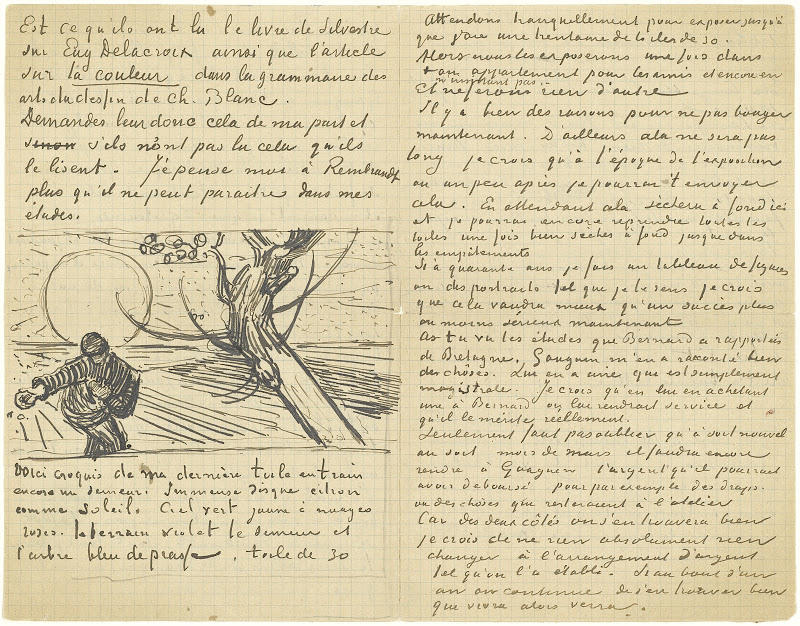 Est ce qu'ils ont lu le livre de Silvestre
sur Eug Delacroix ainsi que l'article
sur la couleur dans la grammaire des
arts du dessin de Ch. Blanc.
Demandes leur donc cela de ma part et
sinon s'ils n'ont pas lu cela qu'ils
le lisent. J'épense moi à Rembrandt
plus qu'il ne peut paraitre dans mes
études.
Voici croquis de ma dernière toile en train
encore un semeur. Immense disque citron
comme soleil. Ciel vert jaune à nuages
roses. le terrain violet le semeur et
l'arbre bleu de prusse. toile de 30
Attendons tranquillement pour exposer jusqu'à
que j'aie une trentaine de toiles de 30.
Alors nous les exposerons une fois dans
ton appartement pour les amis et encore en
n'insistant pas.
Et ne ferons rien d'autre
Il y a bien des raisons pour ne pas bouger
maintenant. D'ailleurs cela ne sera pas
long je crois qu'à l'époque de l'exposition
ou un peu après je pourrai t'envoyer
cela. En attendant cela sèchera à fond ici
et je pourrai encore reprendre toutes les
toiles une fois bien sèches à fond jusque dans
les empâtements
Si à quarante ans je fais un tableau de figures
ou des portraits tel que je le sens je crois
que cela vaudra mieux qu'un succès plus
ou moins sérieux maintenant
As tu vu les études que Bernard a rapportées
de Bretagne, Gauguin m'en a raconté bien
des choses. Lui en a une que est simplement
magistrale. Je crois qu'en lui en achetant
une à Bernard on lui rendrait service et
qu'il le mérite réellement.
Seulement faut pas oublier qu'à soit nouvel
an soit mois de mars il faudra encore
rendre à Gauguin l'argent qu'il pourrait
avoir deboursé pour par exemple des draps
ou des choses que resteraient à l'atelier
Car des deux côtés on s'en trouvera bien
je crois de ne rien absolument rien
changer à l'arrangement d'argent
tel qu'on l'a établi. Si au bout d'un
an on continue de s'en trouver bien
que vivra alors verra.